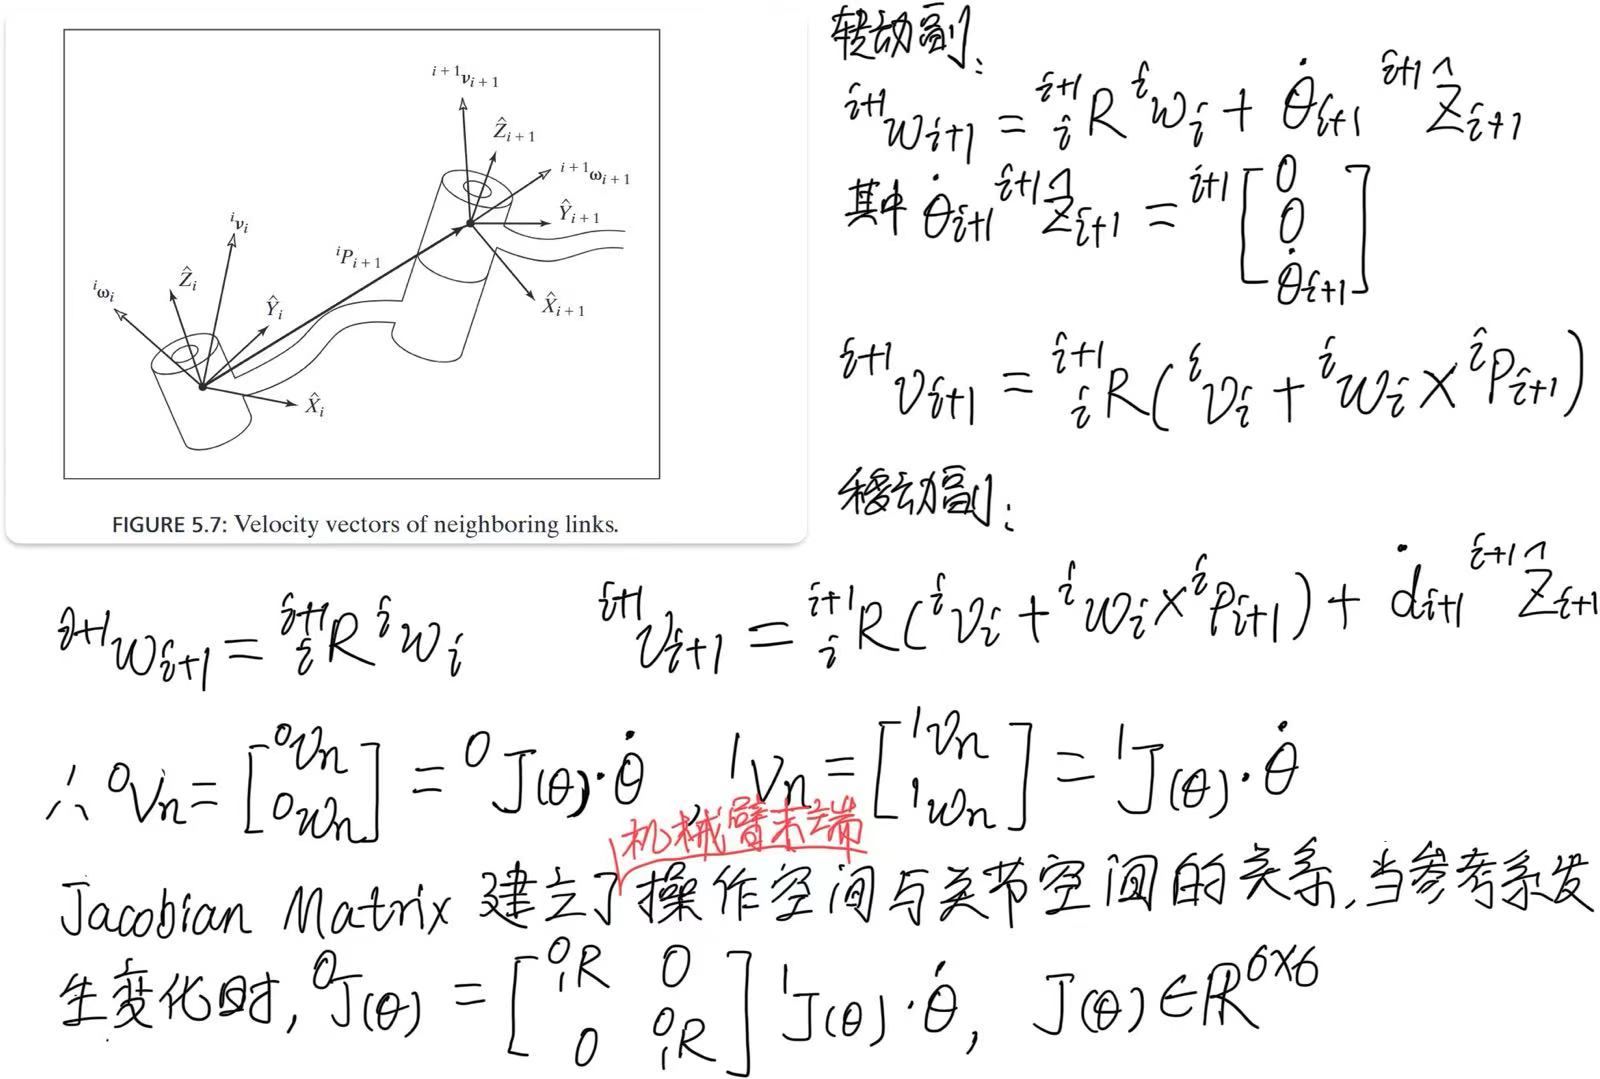 {}^{i+1}ν_{i+1}
Ẑ_{i+1}
{}^{i+1}ω_{i+1}
Ŷ_{i+1}
{}^{i}ν_{i}
{}^{i}P_{i+1}
Ẑ_{i}
{}^{i}ω_{i}
Ŷ_{i}
X̂_{i+1}
X̂_{i}
FIGURE 5.7: Velocity vectors of neighboring links.
转动副:
{}^{i+1}w_{i+1} = {}^{i+1}_{i}R {}^{i}w_{i} + θ̇_{i+1} {}^{i+1}Ẑ_{i+1}
其中 θ̇_{i+1} {}^{i+1}Ẑ_{i+1} = {}^{i+1}[0 0 θ̇_{i+1}]
{}^{i+1}v_{i+1} = {}^{i+1}_{i}R({}^{i}v_{i} + {}^{i}w_{i} × {}^{i}P_{i+1})
移动副:
{}^{i+1}w_{i+1} = {}^{i+1}_{i}R {}^{i}w_{i} {}^{i+1}v_{i+1} = {}^{i+1}_{i}R({}^{i}v_{i} + {}^{i}w_{i} × {}^{i}P_{i+1}) + ḋ_{i+1} {}^{i+1}Ẑ_{i+1}
∴ {}^{0}V_{n} = [{}^{0}v_{n} {}^{0}w_{n}] = {}^{0}J(θ)·θ̇, {}^{1}V_{n} = [{}^{1}v_{n} {}^{1}w_{n}] = {}^{1}J(θ)·θ̇
机械臂末端
Jacobian Matrix 建立了操作空间与关节空间的关系,当参考系发
生变化时, {}^{0}J(θ) = [{}^{0}_{1}R 0 0 {}^{0}_{1}R] {}^{1}J(θ)·θ̇, J(θ)∈ℝ^{6×6}